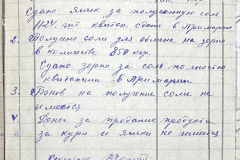 Сдано ячмя за полученную соль
1124 шт квитан. сдан в Примарии
2. Получено соли для обмена на зерно
в количестве 850 кгр.
Сдано зерно за соль полность
квитанции в Примарии
3. Фонов на получение соли не
имеется
V Денег за продание продукты
за кури и яички не имеется